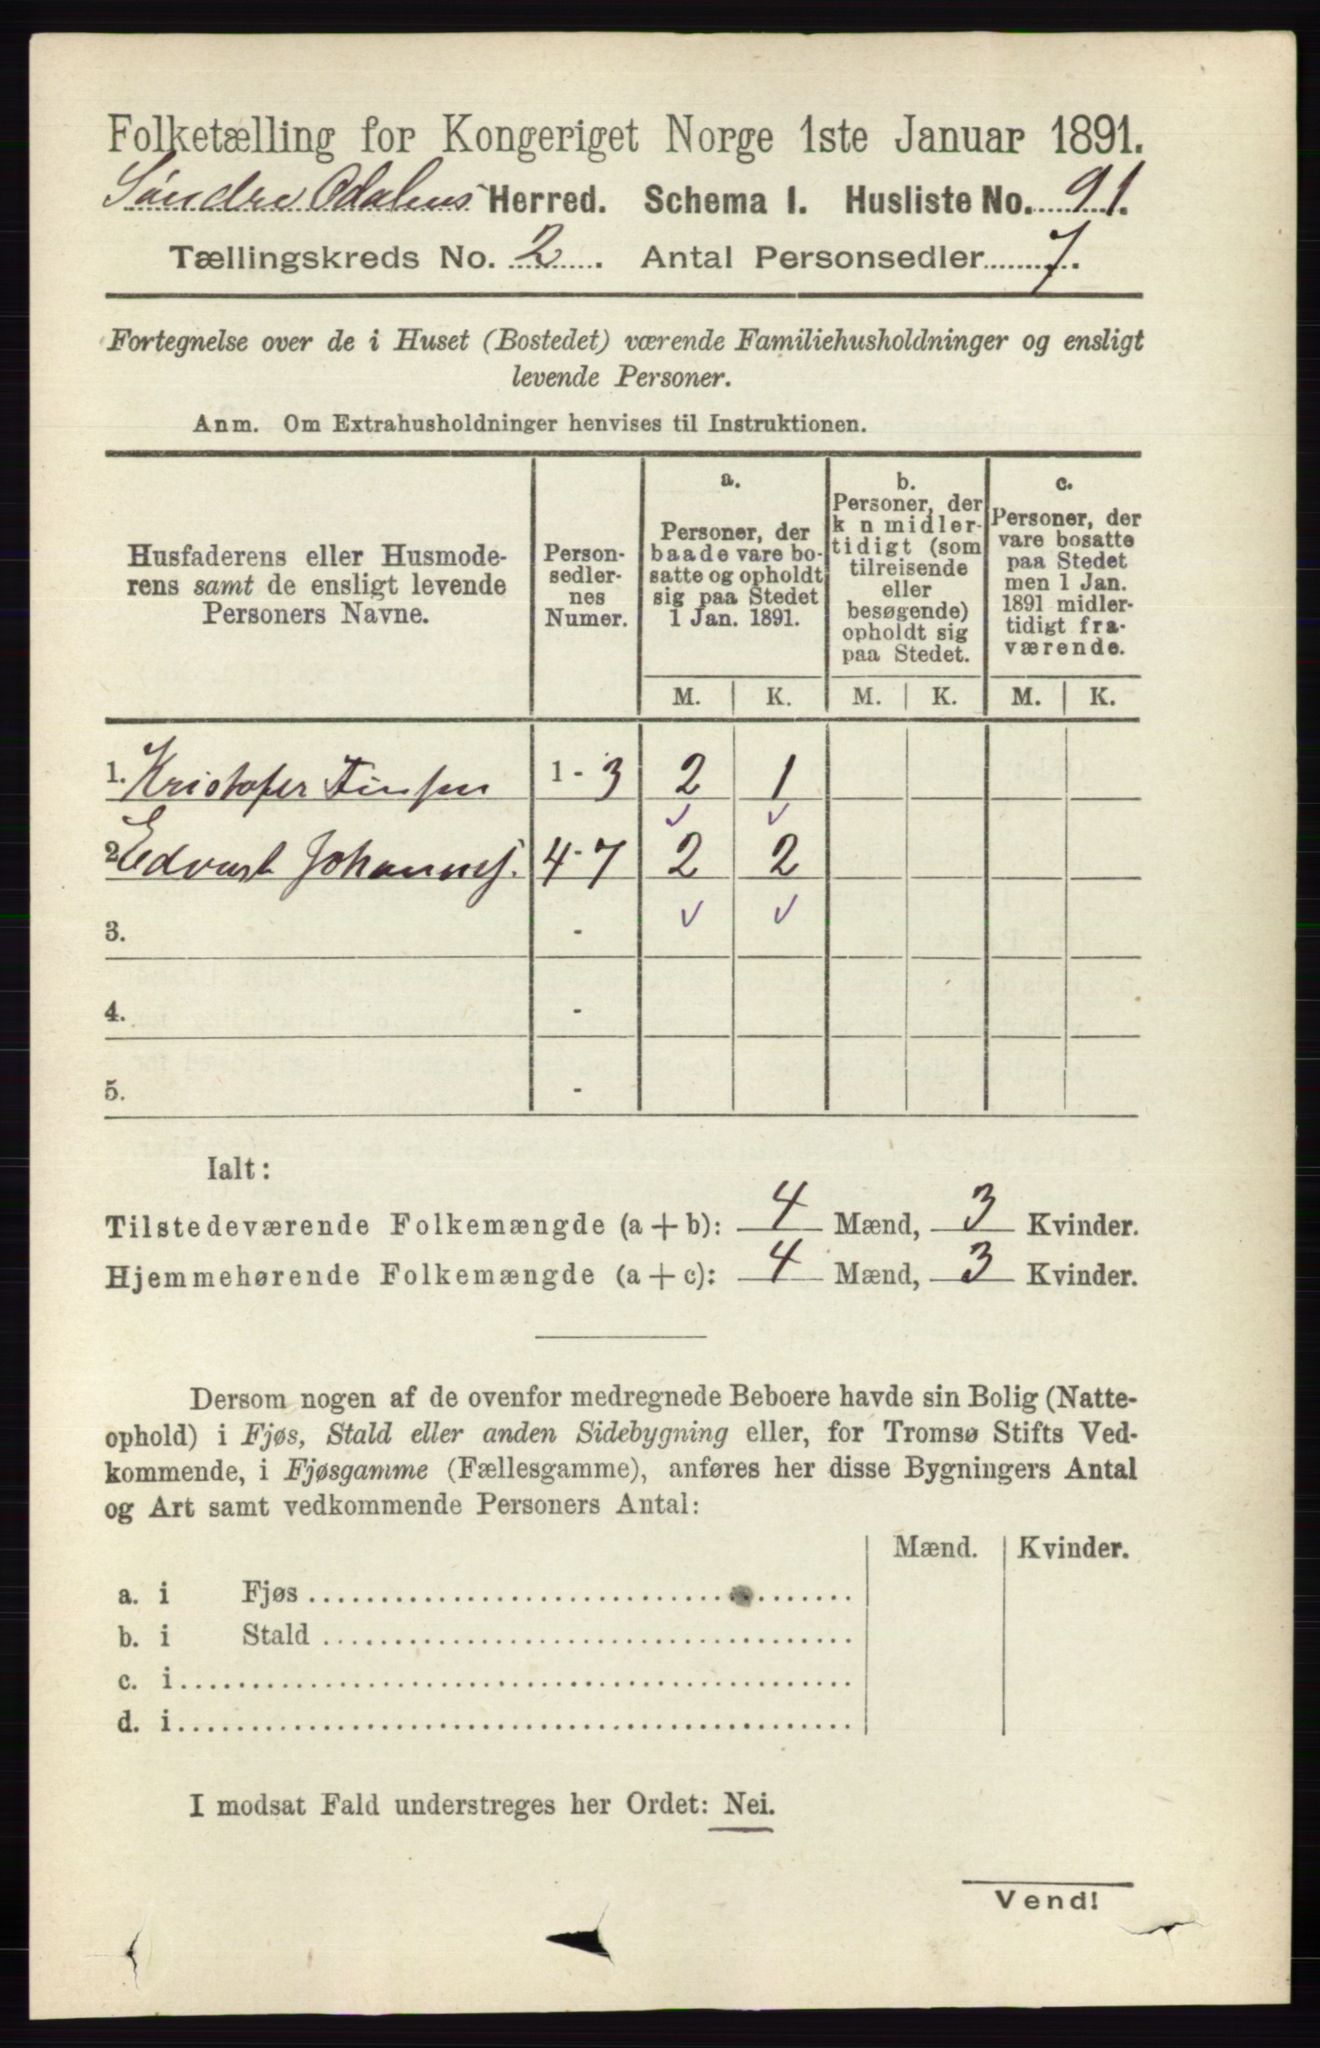 Folketælling for Kongeriget Norge 1ste Januar 1891.
Søndre Odalens Herred. Schema I. Husliste No. 91.
Tællingskreds No. 2. Antal Personsedler 7.
Fortegnelse over de i Huset (Bostedet) værende Familiehusholdninger og ensligt
levende Personer.
Anm. Om Extrahusholdninger henvises til Instruktionen.
Husfaderens eller Husmode-
rens samt de ensligt levende
Personers Navne.
Person-
sedler-
nes
Numer.
a.
Personer, der
baade vare bo-
satte og opholdt
sig paa Stedet
1 Jan. 1891.
b.
Personer, der
k n midler-
tidigt (som
tilreisende
eller
besøgende)
opholdt sig
paa Stedet.
c.
Personer, der
vare bosatte
paa Stedet
men 1 Jan.
1891 midler-
tidigt fra-
værende.
M. K. M. K. M. K.
1. Kristofer 1 - 3 2 1
2. Edvart Johannes. 4-7 2 2
3. -
4. -
5. -
Ialt:
Tilstedeværende Folkemængde (a + b): 4 Mænd, 3 Kvinder.
Hjemmehørende Folkemængde (a + c): 4 Mænd, 3 Kvinder.
Dersom nogen af de ovenfor medregnede Beboere havde sin Bolig (Natte-
ophold) i Fjøs, Stald eller anden Sidebygning eller, for Tromsø Stifts Ved-
kommende, i Fjøsgamme (Fællesgamme), anføres her disse Bygningers Antal
og Art samt vedkommende Personers Antal:
Mænd. Kvinder.
a. i Fjøs
b. i Stald
c. i
d. i
I modsat Fald understreges her Ordet: Nei.
Vend!